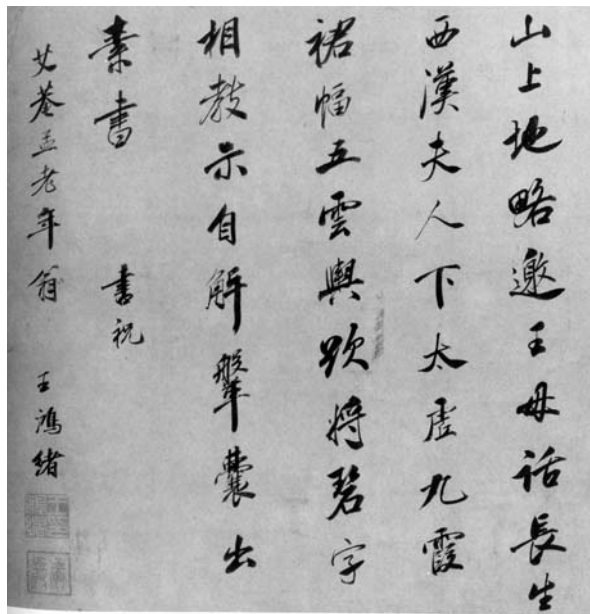 山上地略邀王母話長生
西漢夫人下太虛九霞
裙幅五雲輿欲將碧字
相教示自解鞶囊出
素書 書祝
艾菴孟老年翁 王鴻緒